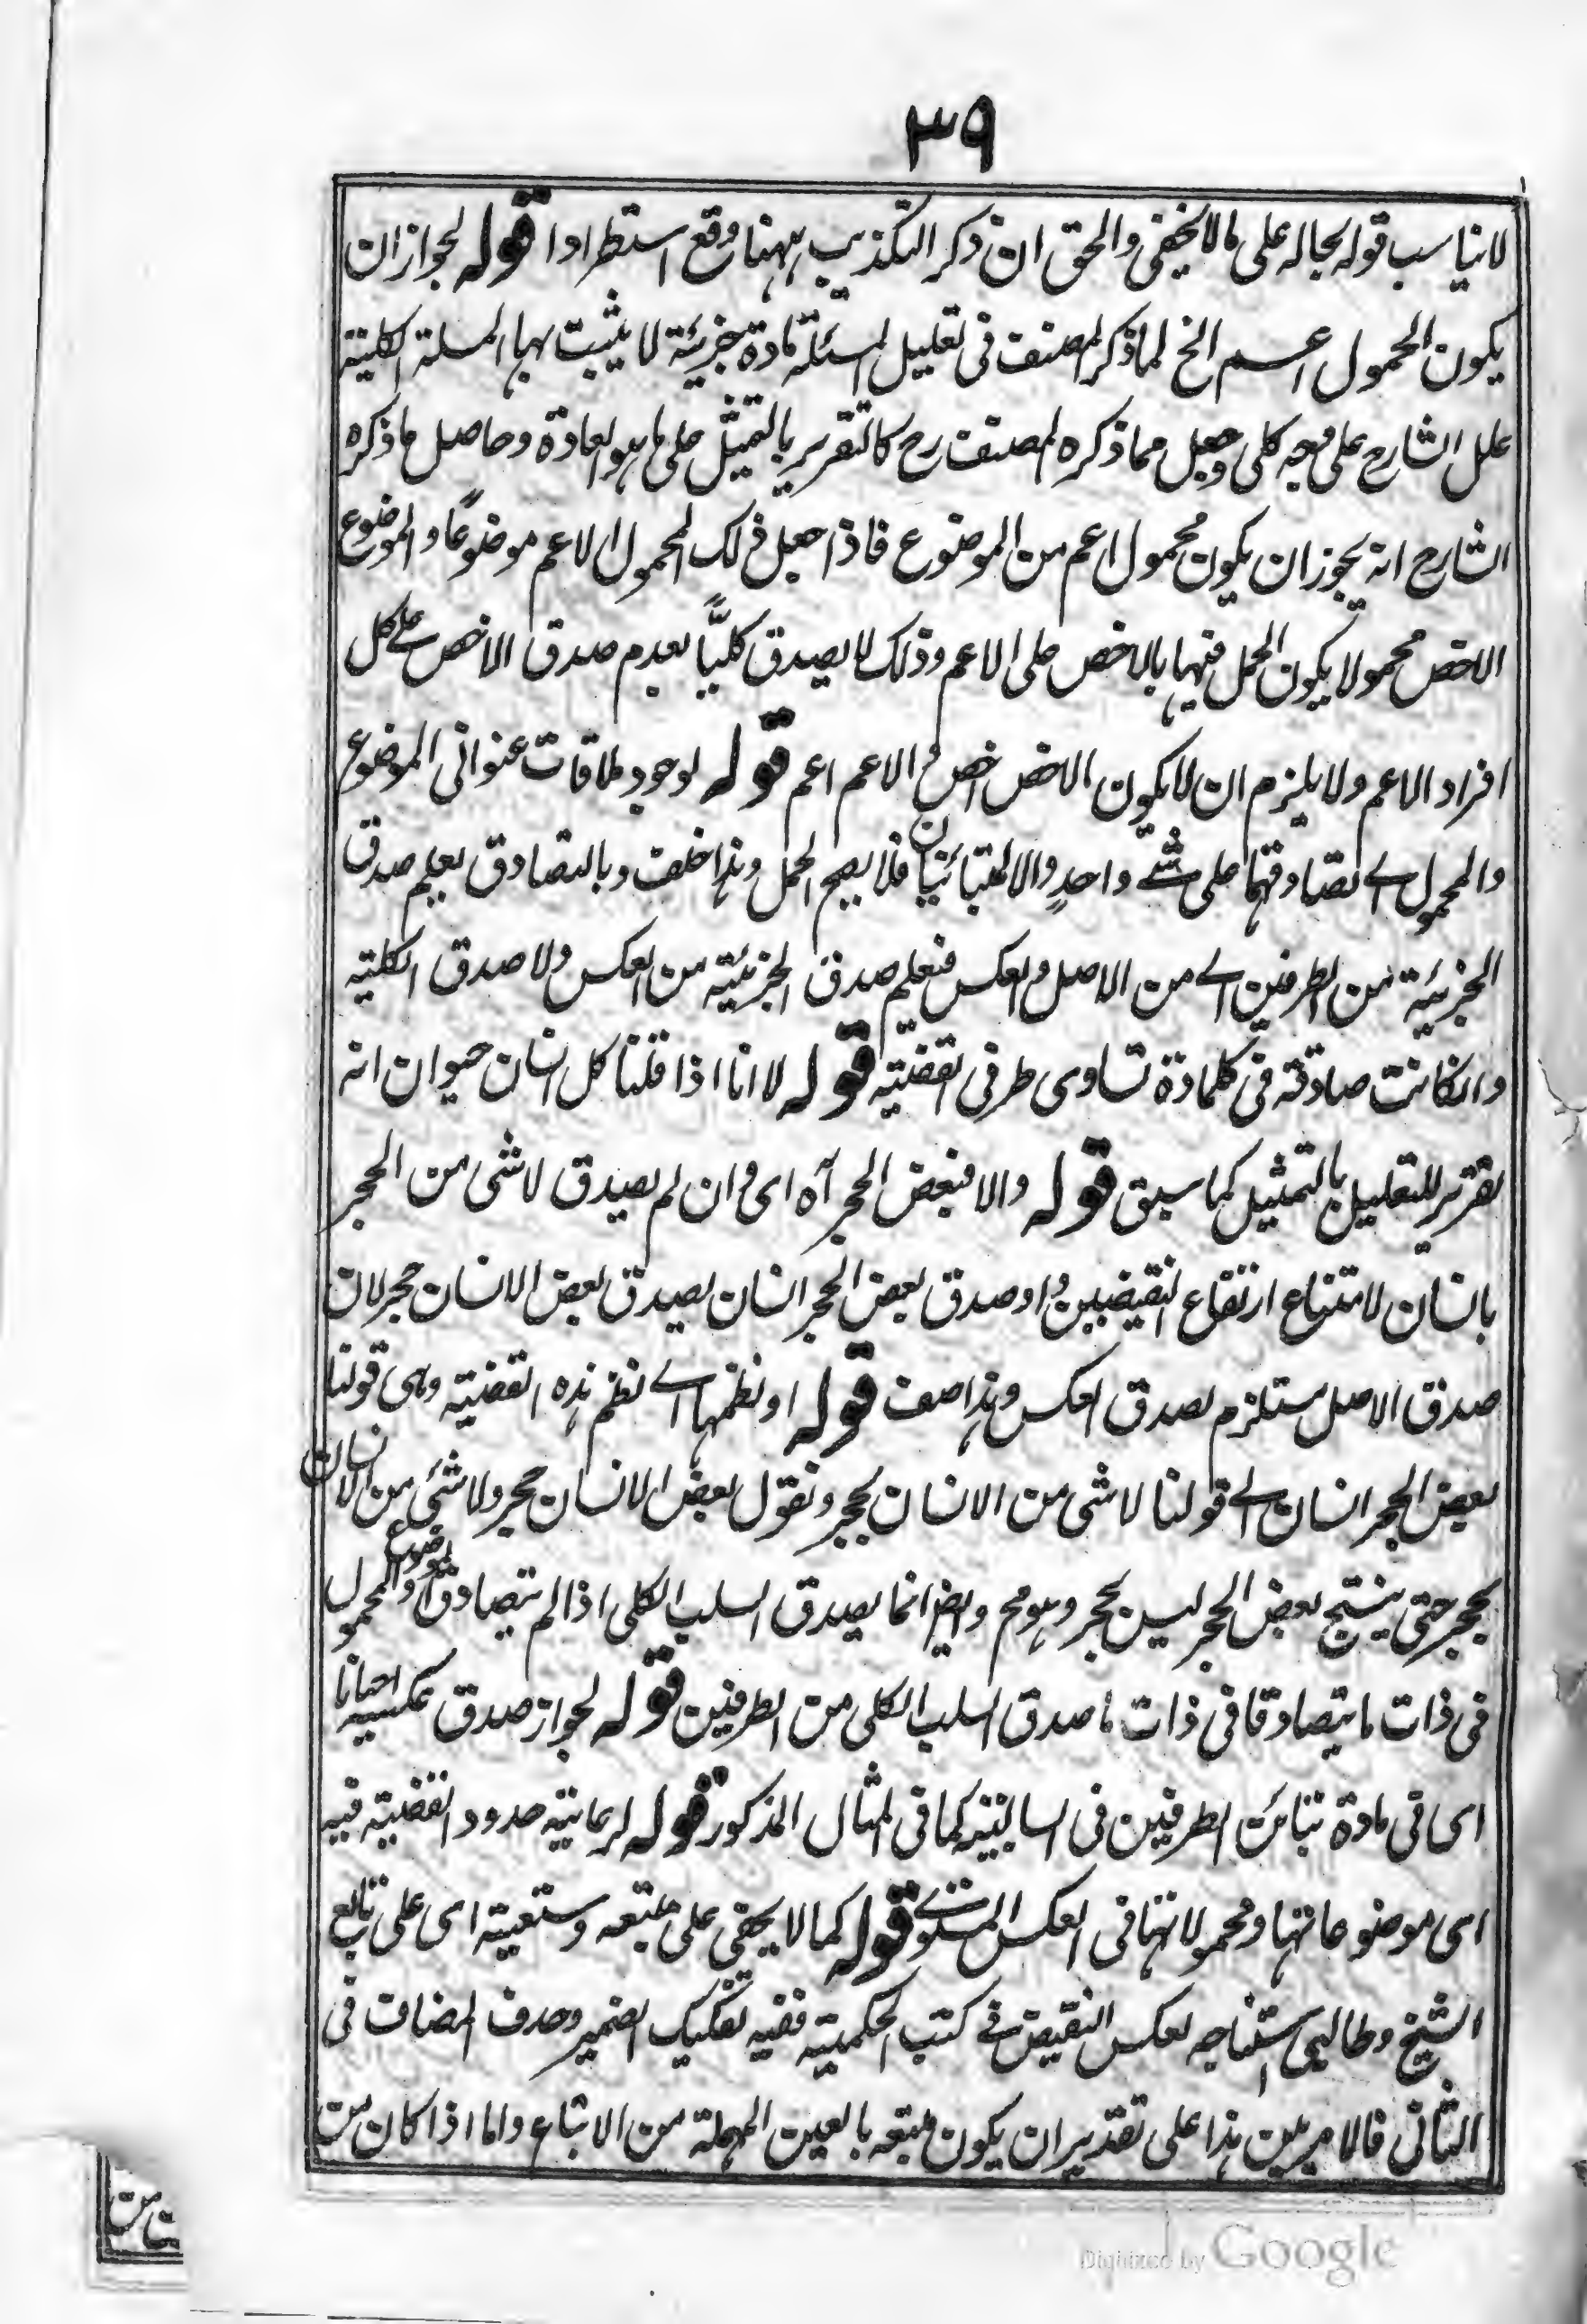 ٣٩
لايناسب قوله بحاله على ما لا يخفى والحق ان ذكر التكذيب ههنا وقع استطرادا قوله لجواز ان
يكون المحمول اعم الخ لما ذكر المصنف فى تعليل المسئلة مادة جزئية لا يثبت بها المسئلة الكلية
علل الشارح على وجه كلى وجعل مما ذكره المصنف رح كالتقرير بالتمثيل على ما هو العادة وحاصل ما ذكره
الشارح انه يجوز ان يكون محمول اعم من الموضوع فاذا جعل ذلك المحمول الاعم موضوعًا والموضوع
الاخص محمولا يكون الحمل فيها بالاخص على الاعم وذلك لا يصدق كليًّا لعدم صدق الاخص على كل
افراد الاعم ولا يلزم ان لا يكون الاخص اخص والاعم اعم قوله لوجود ملاقات عنوانى الموضوع
والمحمول اے تصادقهما على شئے واحدٍ والا لتباينان فلا يصح الحمل وهذا خلف وبالتصادق يعلم صدق
الجزئية من الطرفين اے من الاصل والعكس فنعلم صدق الجزئية من العكس ولا صدق الكلية
وان كانت صادقة فى كل مادة تساوى طرفى القضية قوله لا انا اذا قلنا كل انسان حيوان انه
تقرير للتعليل بالتمثيل كما سبق قوله والا فبعض الحجر آه اى وان لم يصدق لا شى من الحجر
بانسان لامتناع ارتفاع النقيضين ولو صدق بعض الحجر انسان يصدق بعض الانسان حجر لان
صدق الاصل مستلزم لصدق العكس وهذا صف قوله او نظمها اے نظم هذه القضية وهى قولنا
بعض الحجر انسان الے قولنا لا شى من الانسان بحجر ونقول بعض الانسان حجر ولا شئ من الانسان
بحجر حتى ينتج بعض الحجر ليس بحجر وهو مح وايضا انما يصدق السلب الكلى اذا لم يتصادق الموضوع والمحمول
فى ذات ما يتصادقا فى ذات ما صدق السلب الكلى من الطرفين قوله لجواز صدق عكسيه احيانا
اى فى مادة تبائن الطرفين فى السالبتين كما فى المثال المذكور قوله لرعاية حدود القضية فيه
اى موضوعاتها ومحمولاتها فى العكس المستوے قوله كما لا يخفى على متبعه ومستعيبه اى على تابع
الشيخ وطالبى استنتاجه لعكس النقيض فے كتب الحكمية ففيه تفكيك الضمير وحذف المضاف فى
الثانى فالامر هين هذا على تقدير ان يكون متبعه بالعين المهملة من الاتباع واما اذا كان من
Digitized by Google